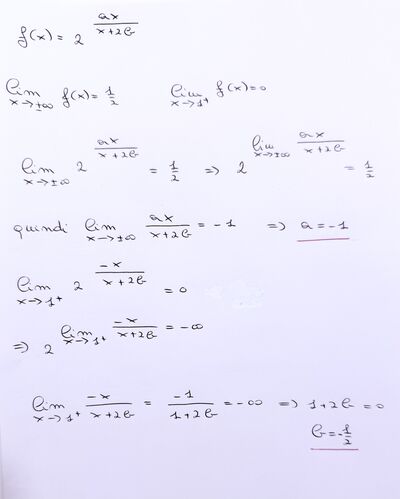 f(x) = 2^{\frac{ax}{x+2b}}
\lim_{x \to \pm\infty} f(x) = \frac{1}{2} \lim_{x \to 1^+} f(x) = 0
\lim_{x \to \pm\infty} 2^{\frac{ax}{x+2b}} = \frac{1}{2} => 2^{\lim_{x \to \pm\infty} \frac{ax}{x+2b}} = \frac{1}{2}
quindi \lim_{x \to \pm\infty} \frac{ax}{x+2b} = -1 => a = -1
\lim_{x \to 1^+} 2^{\frac{-x}{x+2b}} = 0
=> 2^{\lim_{x \to 1^+} \frac{-x}{x+2b} = -\infty}
\lim_{x \to 1^+} \frac{-x}{x+2b} = \frac{-1}{1+2b} = -\infty => 1+2b = 0
b = -\frac{1}{2}